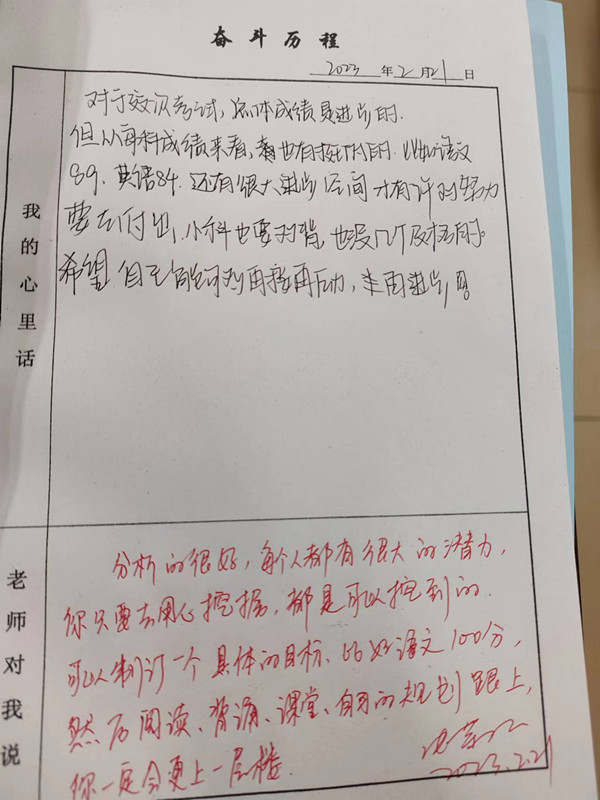 奋斗历程
2023 年 2 月 21 日
我的心里话
对于这次考试，总体成绩是进步的.
但从每科成绩来看，也有 的. 比如语文
89. 英语84. 还有很大进步空间 才有 努力
要去付出，小科也要 背，也没几个及格的.
希望自己 再接再厉，进步
老师对我说
分析的很好，每个人都有很大的潜力，
你只要去用心挖掘，都是可以挖到的.
可以制订一个具体的目标、比如语文100分，
然后阅读、背诵、课堂、自习的规划跟上，
你一定会更上一层楼.
2023.2.21